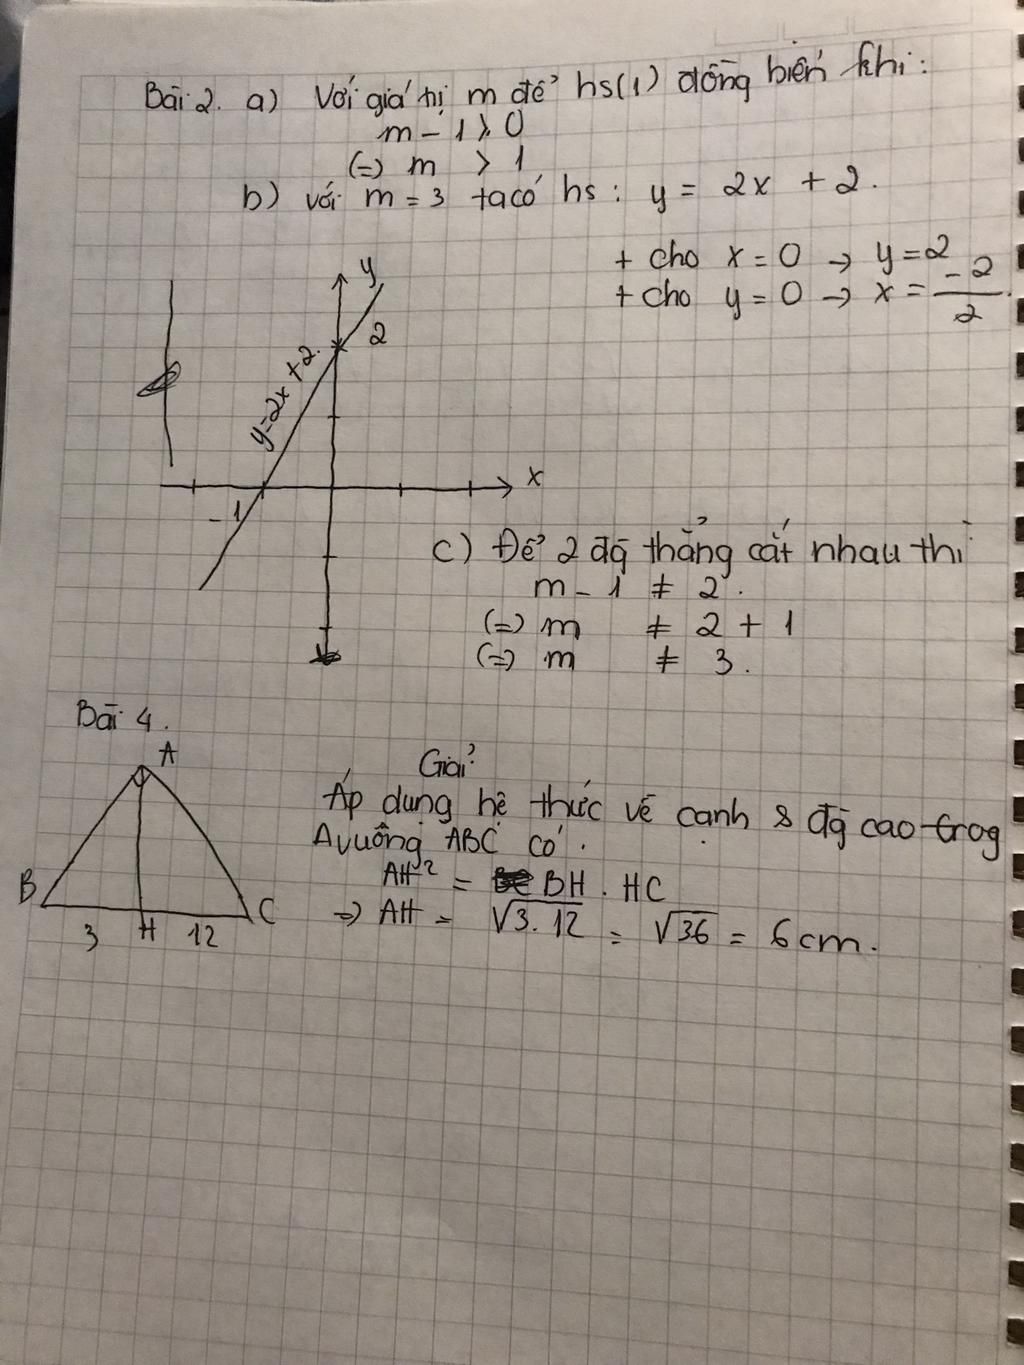 Bài 2. a) Với giá trị m để hs(1) đồng biến khi:
m - 1 > 0
(=) m > 1
b) với m = 3 ta có hs: y = 2x + 2.
+ cho x = 0 → y = 2
+ cho y = 0 → x = -2/2.
y
2
y=2x+2.
x
-1
c) Để 2 đg thẳng cắt nhau thì
m - 1 ≠ 2.
(=) m ≠ 2 + 1
(=) m ≠ 3.
Bài 4.
A
B
C
3 H 12
Giải
Áp dụng hệ thức về cạnh & đg cao trog
Δvuông ABC có.
AH² = BH . HC
=> AH = √3. 12 = √36 = 6cm.